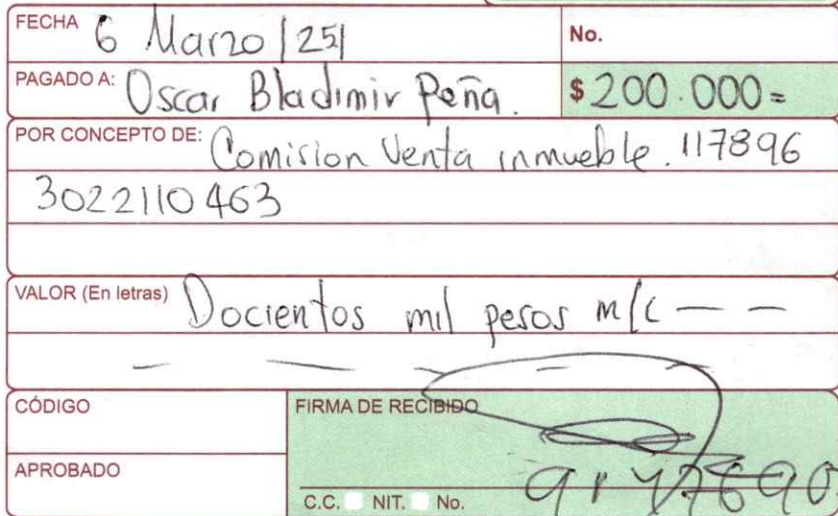 FECHA 6 Marzo / 25/
No.
PAGADO A: Oscar Bladimir Peña.
$ 200.000=
POR CONCEPTO DE: Comision Venta inmueble. 117896
3022110463
VALOR (En letras) Docientos mil pesos m/c — —
CÓDIGO
FIRMA DE RECIBIDO
APROBADO
C.C. NIT. No.